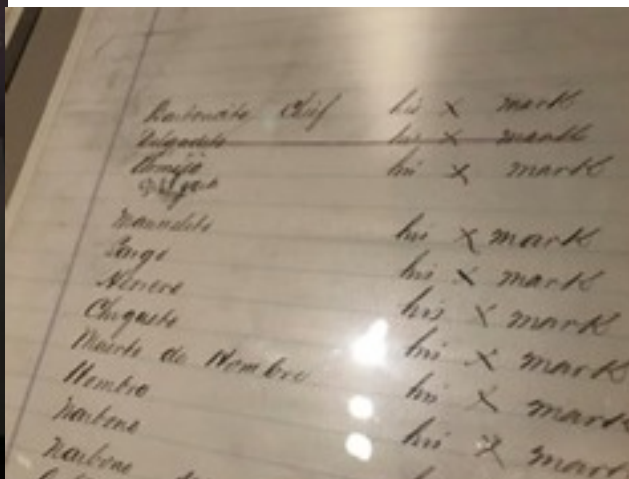 Barboncito Chief his x mark
Delgadito his x mark
Armijo his x mark
Delgado
Manuelito his x mark
Largo his x mark
Herrero his x mark
Chiqueto his x mark
Muerto de Hombre his x mark
Hombro his x mark
Narbono his x mark
Narbono